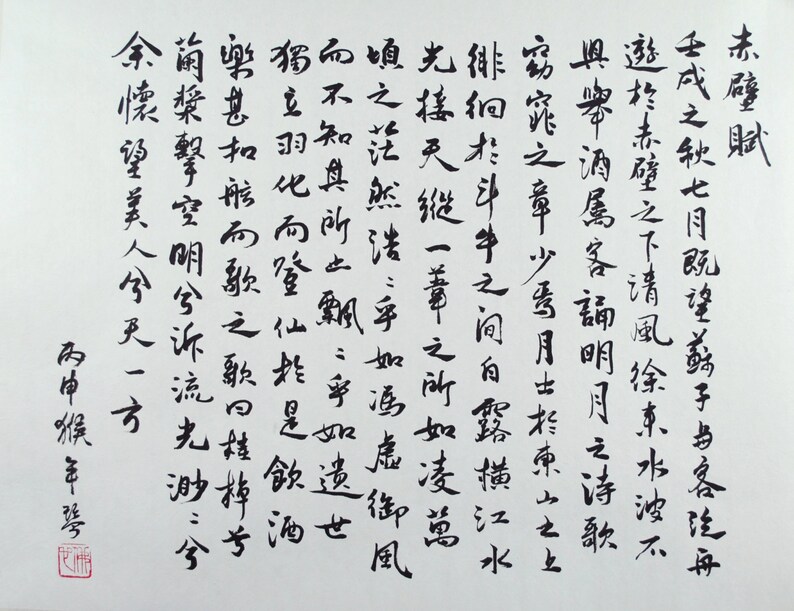 赤壁賦
壬戌之秋七月既望蘇子與客泛舟
遊於赤壁之下清風徐來水波不
興舉酒屬客誦明月之詩歌
窈窕之章少焉月出於東山之上
徘徊於斗牛之間白露橫江水
光接天縱一葦之所如凌萬
頃之茫然浩〻乎如馮虛御風
而不知其所止飄〻乎如遺世
獨立羽化而登仙於是飲酒
樂甚扣舷而歌之歌曰桂棹兮
蘭槳擊空明兮泝流光渺〻兮
余懷望美人兮天一方
丙申猴年琴